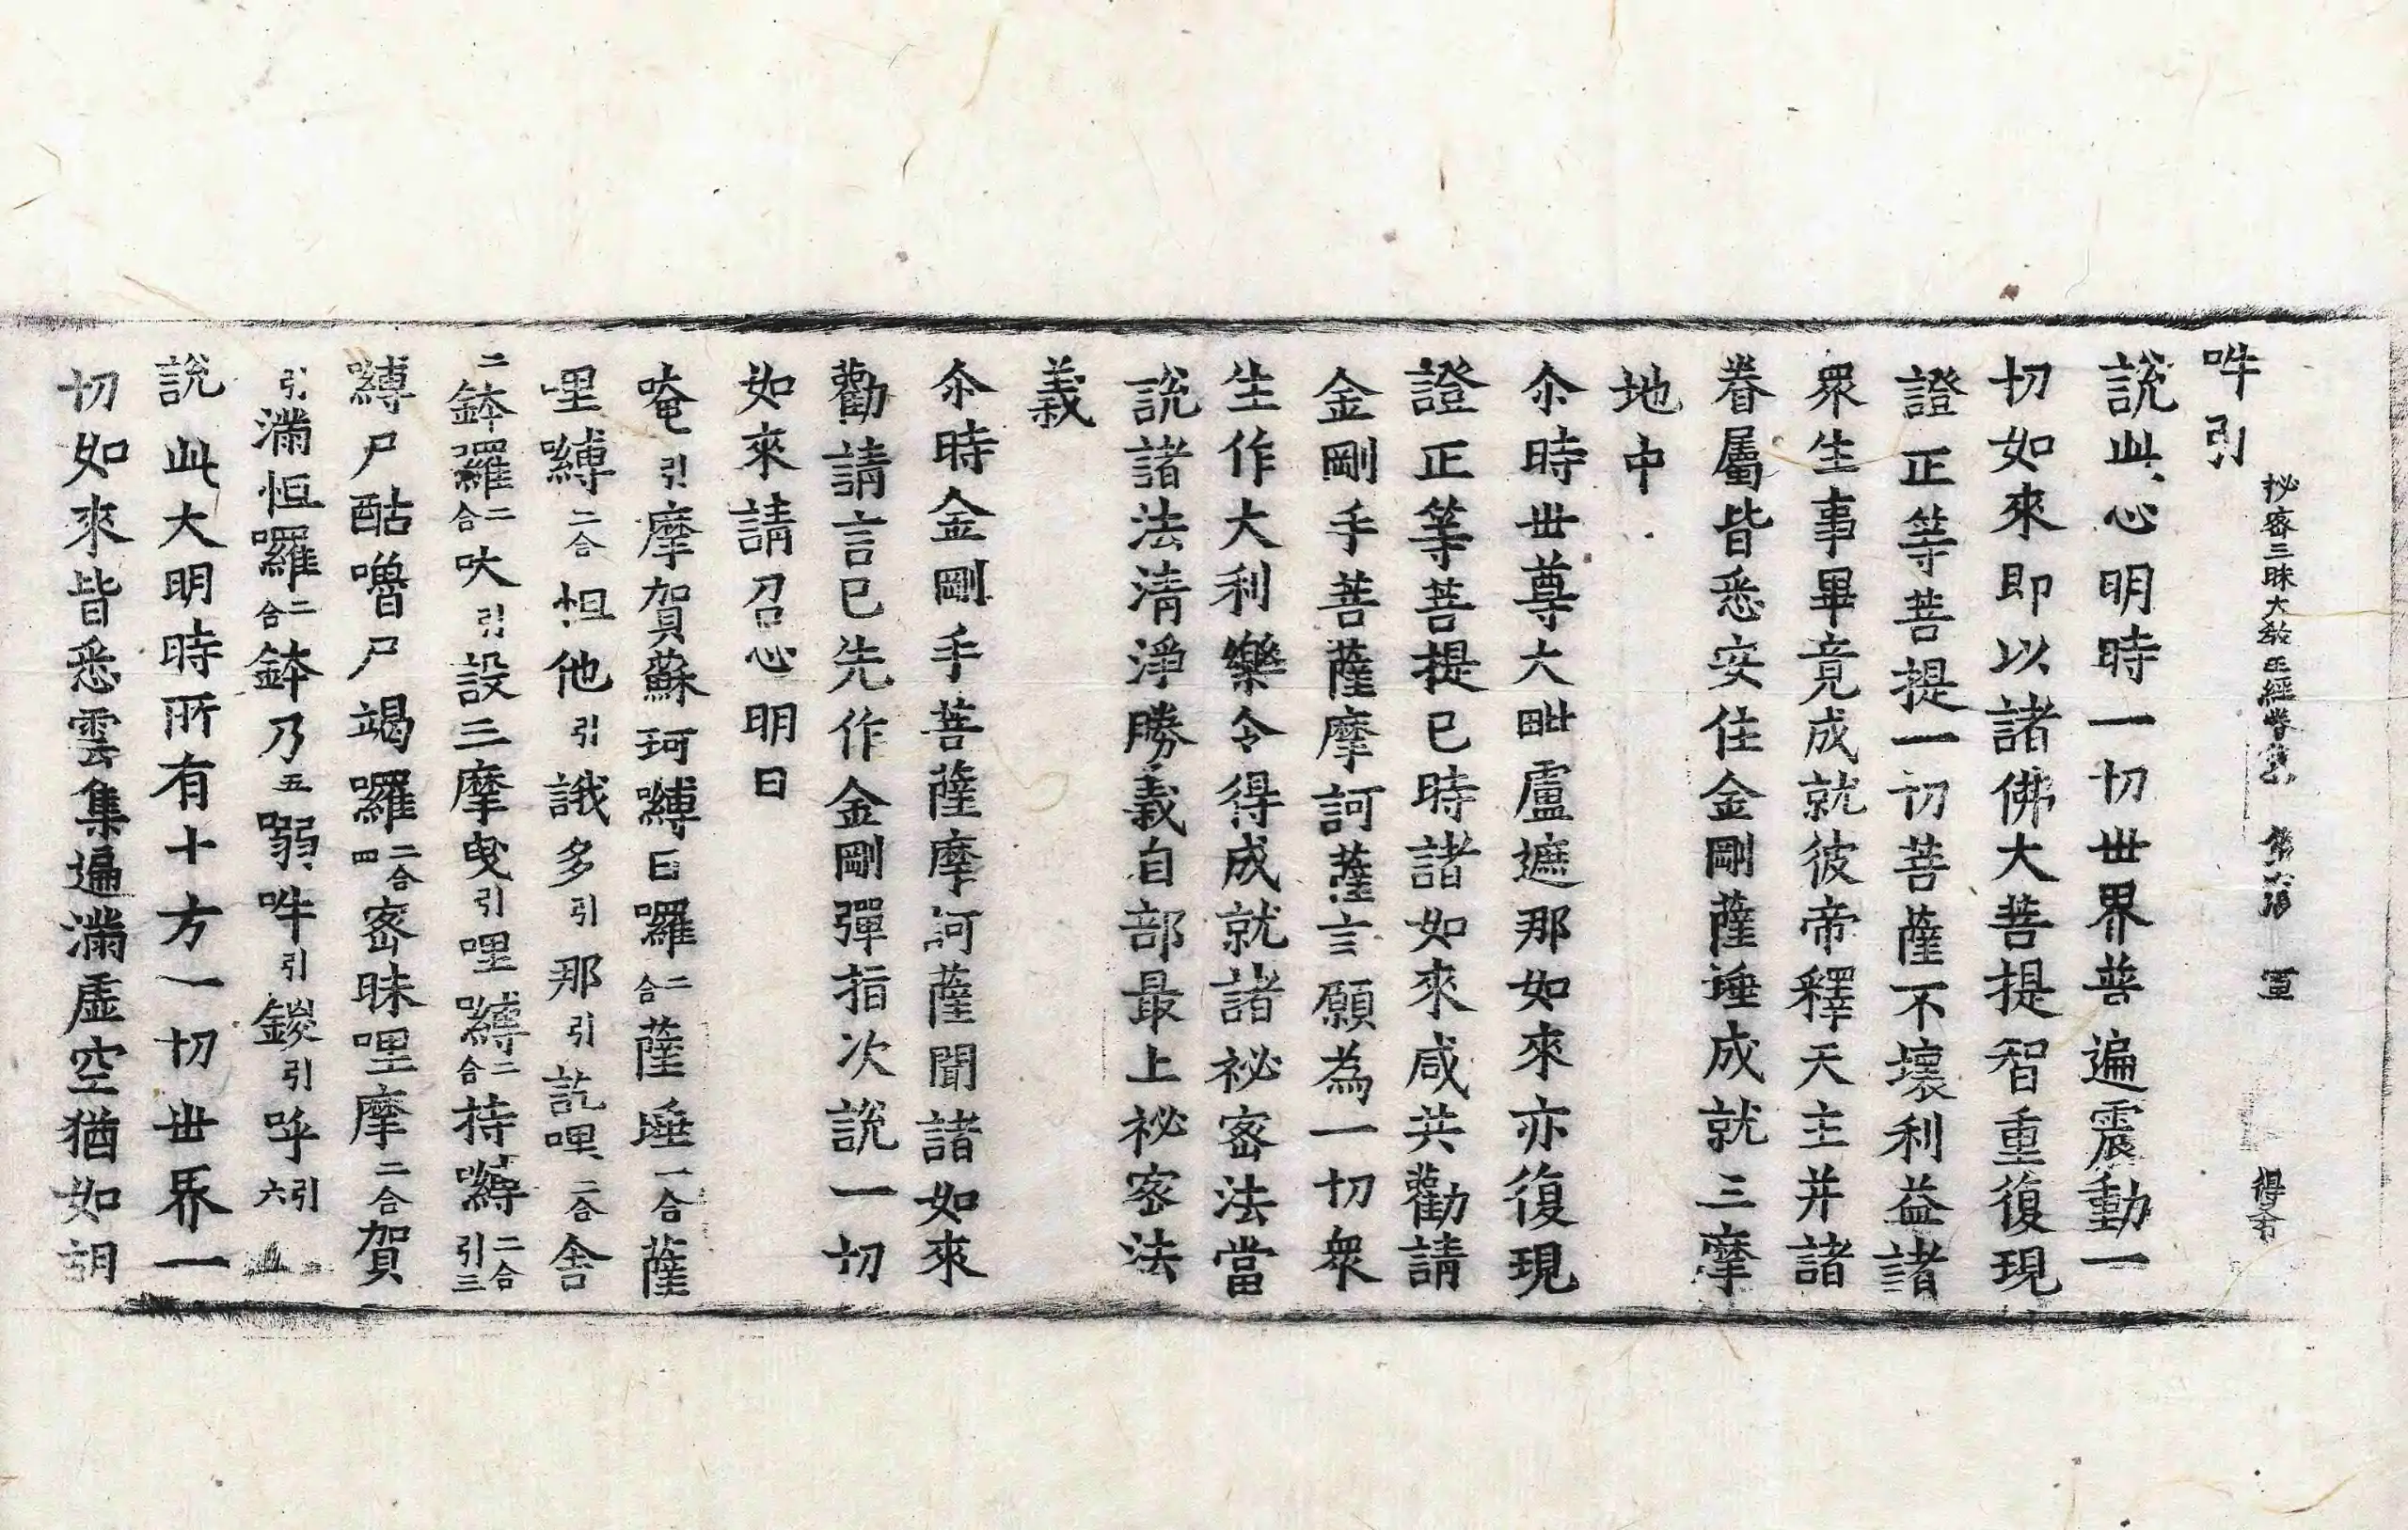 吽引
秘密三昧大教王經卷第
說此心明時一切世界普遍震動一
切如來即以諸佛大菩提智重復現
證正等菩提一切菩薩不壞利益諸
眾生事畢竟成就彼帝釋天主并諸
眷屬皆悉安住金剛薩埵成就三摩
地中
尒時世尊大毗盧遮那如來亦復現
證正等菩提已時諸如來咸共勸請
金剛手菩薩摩訶薩言願為一切眾
生作大利樂令得成就諸祕密法當
說諸法清淨勝義自部最上祕密法
義
尒時金剛手菩薩摩訶薩聞諸如來
勸請言已先作金剛彈指次說一切
如來請召心明曰
唵引摩賀蘇珂嚩日囉二合薩埵一合薩
哩嚩二合怛他引誐多引那引訖哩二合舍
二鉢囉二合吠引設三摩曳引哩嚩二合持嚩二合引三
嚩尸酤嚕尸竭囉二合四密昧哩摩二合賀
引滿怛囉二合鉢乃五嗍吽引鍐引呼引六
說此大明時所有十方一切世界一
切如來皆悉雲集遍滿虛空猶如胡